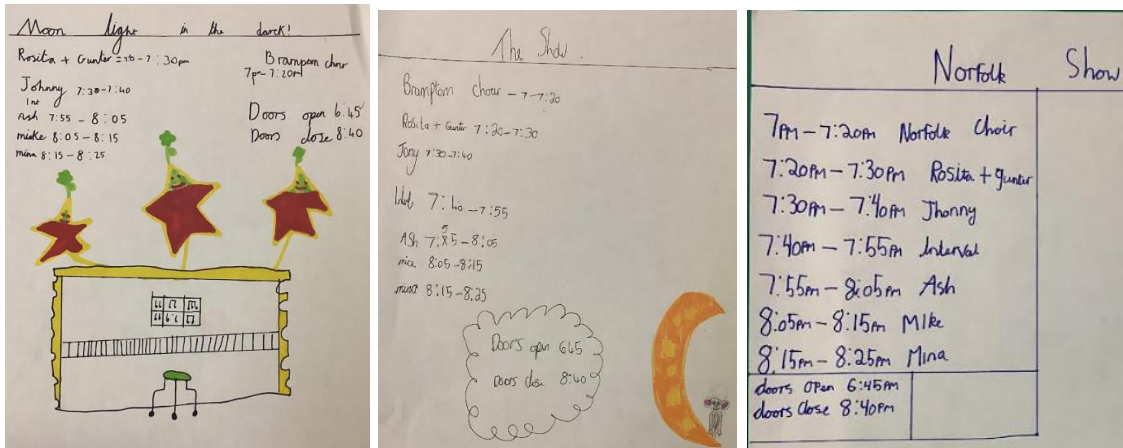 Moon light in the darck!
Rosita + Gunter = - 7:30pm
Brampton choir
7pm - 7:20pm
Johnny 7:30 - 7:40
Int
Ash 7:55 - 8:05
miske 8:05 - 8:15
mina 8:15 - 8:25
Doors open 6:45
Doors close 8:40
The Show.
Bramptom chour - 7-7:20
Rosita + Gunter 7:20-7:30
Jony 7:30-7:40
7:40 - 7:55
Ash 7:55 - 8:05
8:05 - 8:15
mina 8:15 - 8:25
Doors open 645
Doors close 8:40
Norfolk Show
7PM - 7:20PM Norfolk Choir
7:20PM - 7:30PM Rosita + gunter
7:30PM - 7:40PM Jhonny
7:40PM - 7:55PM Interval
7:55PM - 8:05PM Ash
8:05PM - 8:15PM Mike
8:15PM - 8:25PM Mina
doors open 6:45PM
doors close 8:40PM